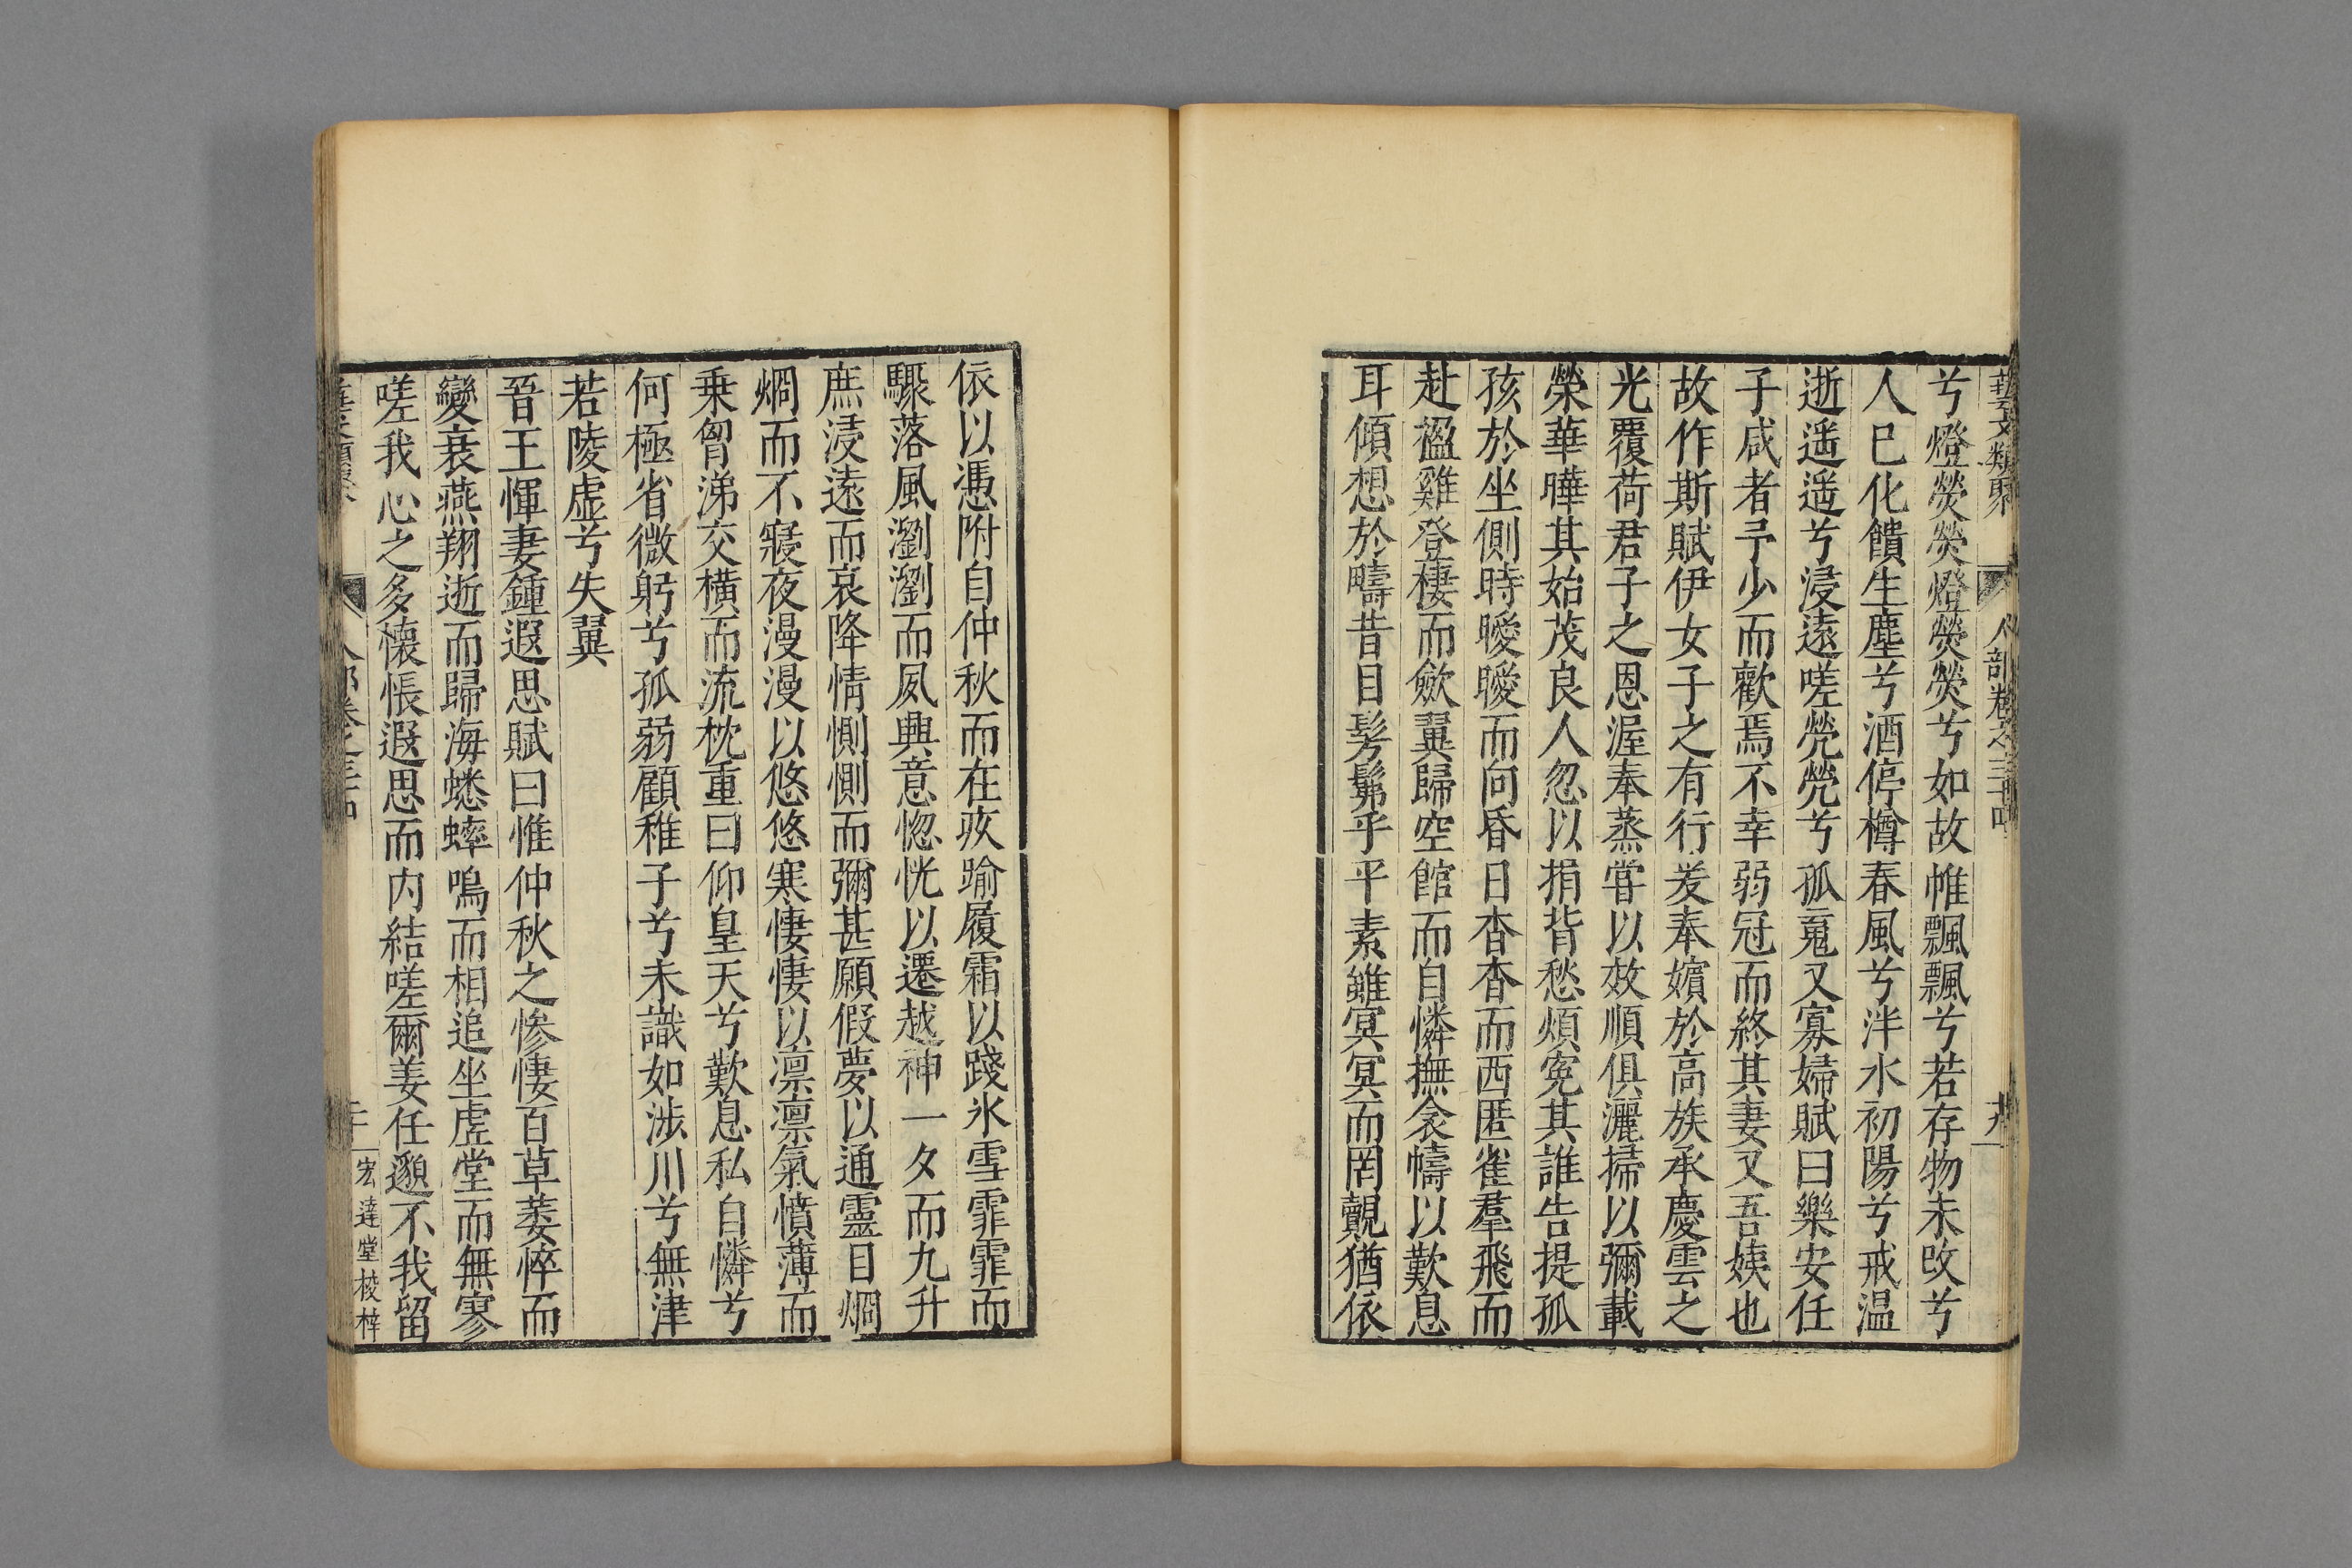 藝文類聚 人部卷之三十四 十九
兮燈熒熒燈熒熒兮如故帷飄飄兮若存物未改兮
人已化饋生塵兮酒停樽春風兮泮水初陽兮戒温
逝遥遥兮浸遠嗟煢煢兮孤䰟又寡婦賦曰樂安任
子咸者予少而歡焉不幸弱冠而終其妻又吾姨也
故作斯賦伊女子之有行爰奉嬪於高族承慶雲之
光覆荷君子之恩渥奉蒸甞以效順俱灑掃以彌載
榮華曄其始茂良人忽以捐背愁煩寃其誰告提孤
孩於坐側時曖曖而向昏日杳杳而西匿雀羣飛而
赴楹雞登棲而歛翼歸空館而自憐撫衾幬以歎息
耳傾想於疇昔目髣髴乎平素雖冥冥而罔覿猶依
依以憑附自仲秋而在疚踰履霜以踐氷雪霏霏而
驟落風瀏瀏而夙興意惚恍以遷越神一夕而九升
庶浸遠而哀降情惻惻而彌甚願假夢以通靈目烱
烱而不寢夜漫漫以悠悠寒悽悽以凛凛氣憤薄而
乗胷涕交橫而流枕重曰仰皇天兮歎息私自憐兮
何極省微躬兮孤弱顧稚子兮未識如涉川兮無津
若陵虚兮失翼
晉王惲妻鍾遐思賦曰惟仲秋之惨悽百草萎悴而
變衰燕翔逝而歸海蟋蟀鳴而相追坐虚堂而無寥
嗟我心之多懐悵遐思而内結嗟爾姜任邈不我留
人部卷之三十四 二十 宏達堂校梓